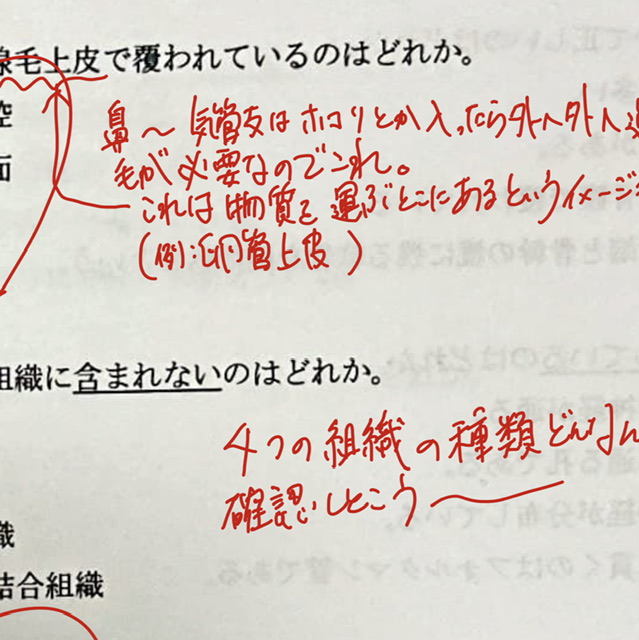 線毛上皮で覆われているのはどれか。
腔
鼻〜気管支はホコリとか入ったら外へ外へ運
面
毛が必要なのでこれ。
これは物質を運ぶとこにあるというイメージ
(例:卵管上皮)
組織に含まれないのはどれか。
4つの組織の種類どんなん
確認しとこう〜
織
結合組織